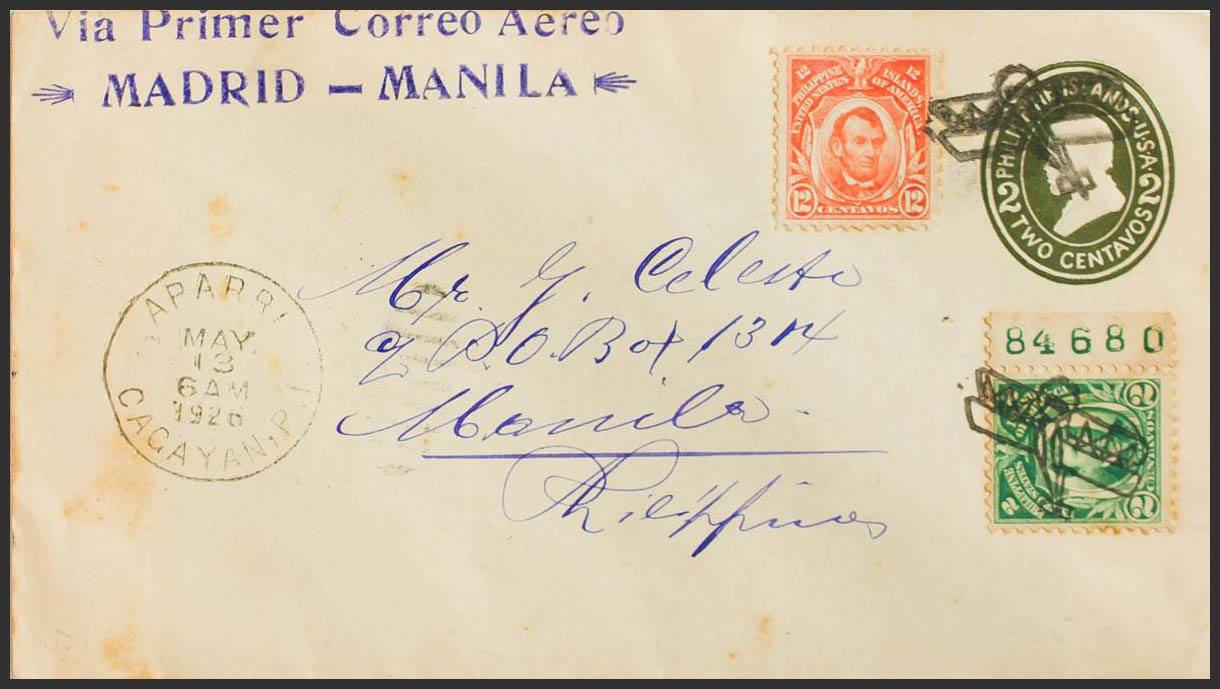 Via Primer Correo Aereo
MADRID – MANILA
12 12
PHILIPPINE ISLANDS.
UNITED STATES OF AMERICA.
12 CENTAVOS 12
PHILIPPINE ISLANDS·U·S·A·
2 2
TWO CENTAVOS
Mr. G. Celeste
% P.O. Box 1314
Manila.
Philippines
APARRI
MAY
13
6 AM
1926
CAGAYAN, P. I.
84680
2 CENTAVOS 2
PHILIPPINE
UNITED STATES
2